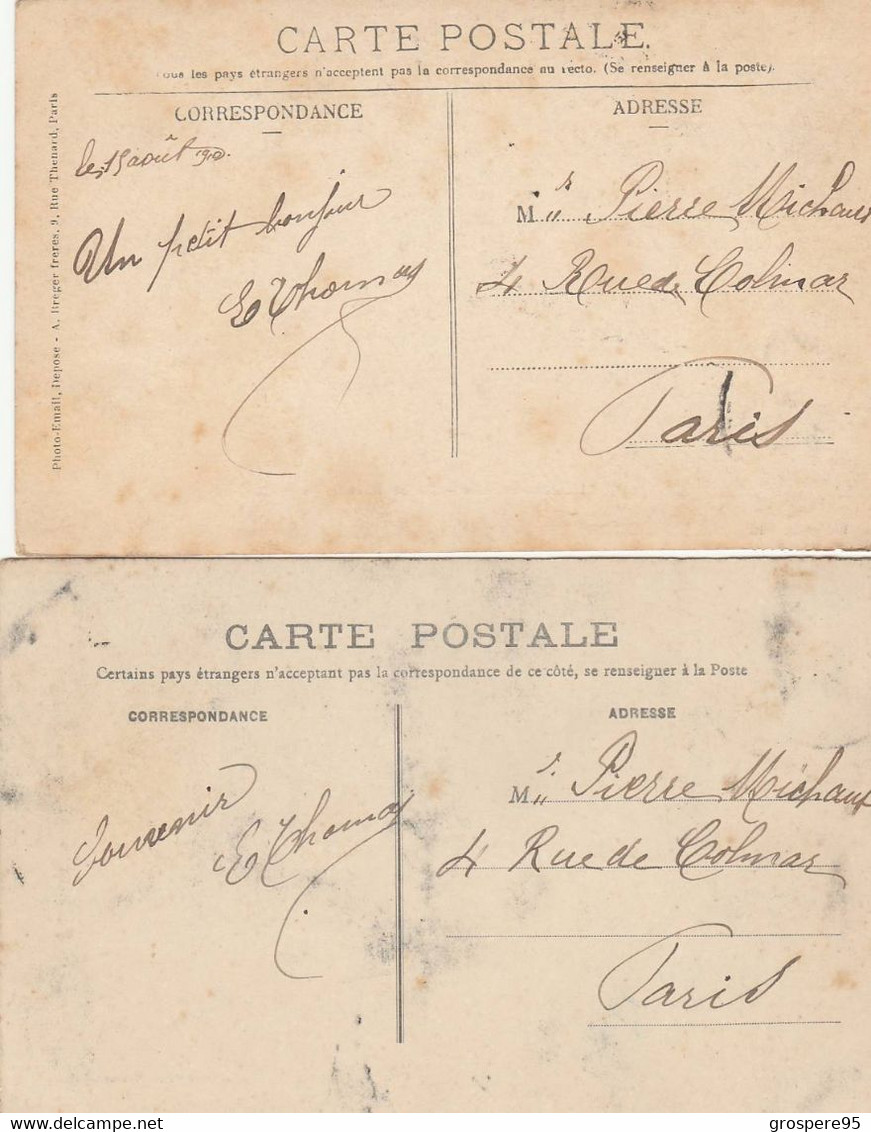 CARTE POSTALE.
Tous les pays étrangers n'acceptent pas la correspondance au recto. (Se renseigner à la poste).
CORRESPONDANCE
ADRESSE
Photo-Email, Depose - A. Breger freres, 9, Rue Thenard, Paris
le 15 août 1910.
Un petit bonjour
E Thomas
Mr Pierre Michaux
4 Rue de Colmar
Paris
CARTE POSTALE
Certains pays étrangers n'acceptant pas la correspondance de ce côté, se renseigner à la Poste
CORRESPONDANCE
ADRESSE
Souvenir
E Thomas
Mr Pierre Michaux
4 Rue de Colmar
Paris
grospere95